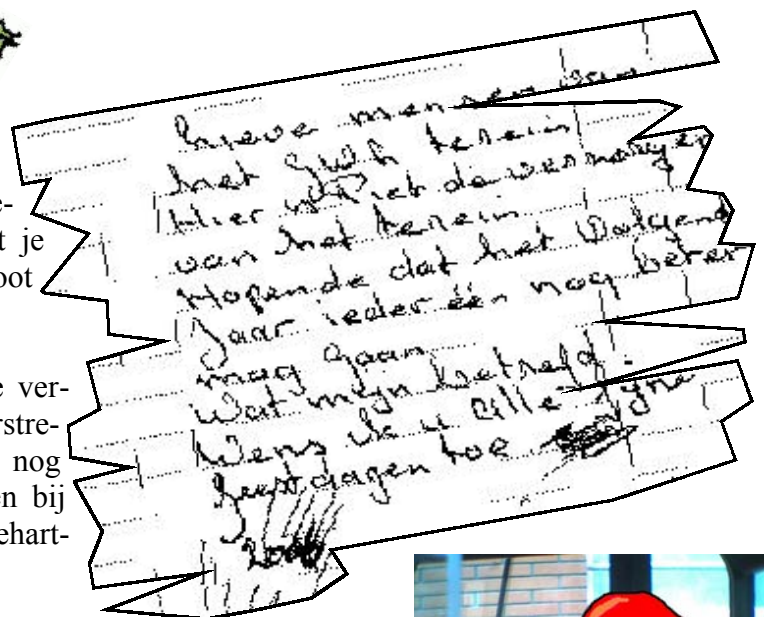 e-
t je
oot
e ver-
rstre-
nog
en bij
ehart-
Lieve mensen van
het GWH terein
Hier is de vervanger
van het terein
Hopende dat het Volgend
Jaar ieder één nog beter
mag gaan
Wat mijn betreft
Wens ik u alle fijne
feestdagen toe
2000